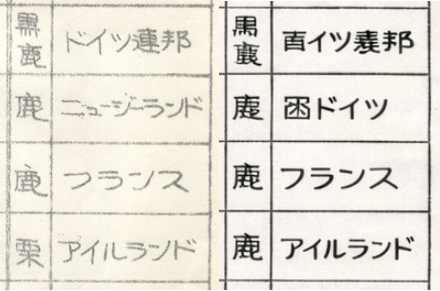 黒鹿 ドイツ連邦
鹿 ニュージーランド
鹿 フランス
栗 アイルランド
黒
百イツ 邦
鹿 ドイツ
鹿 フランス
鹿 アイルランド